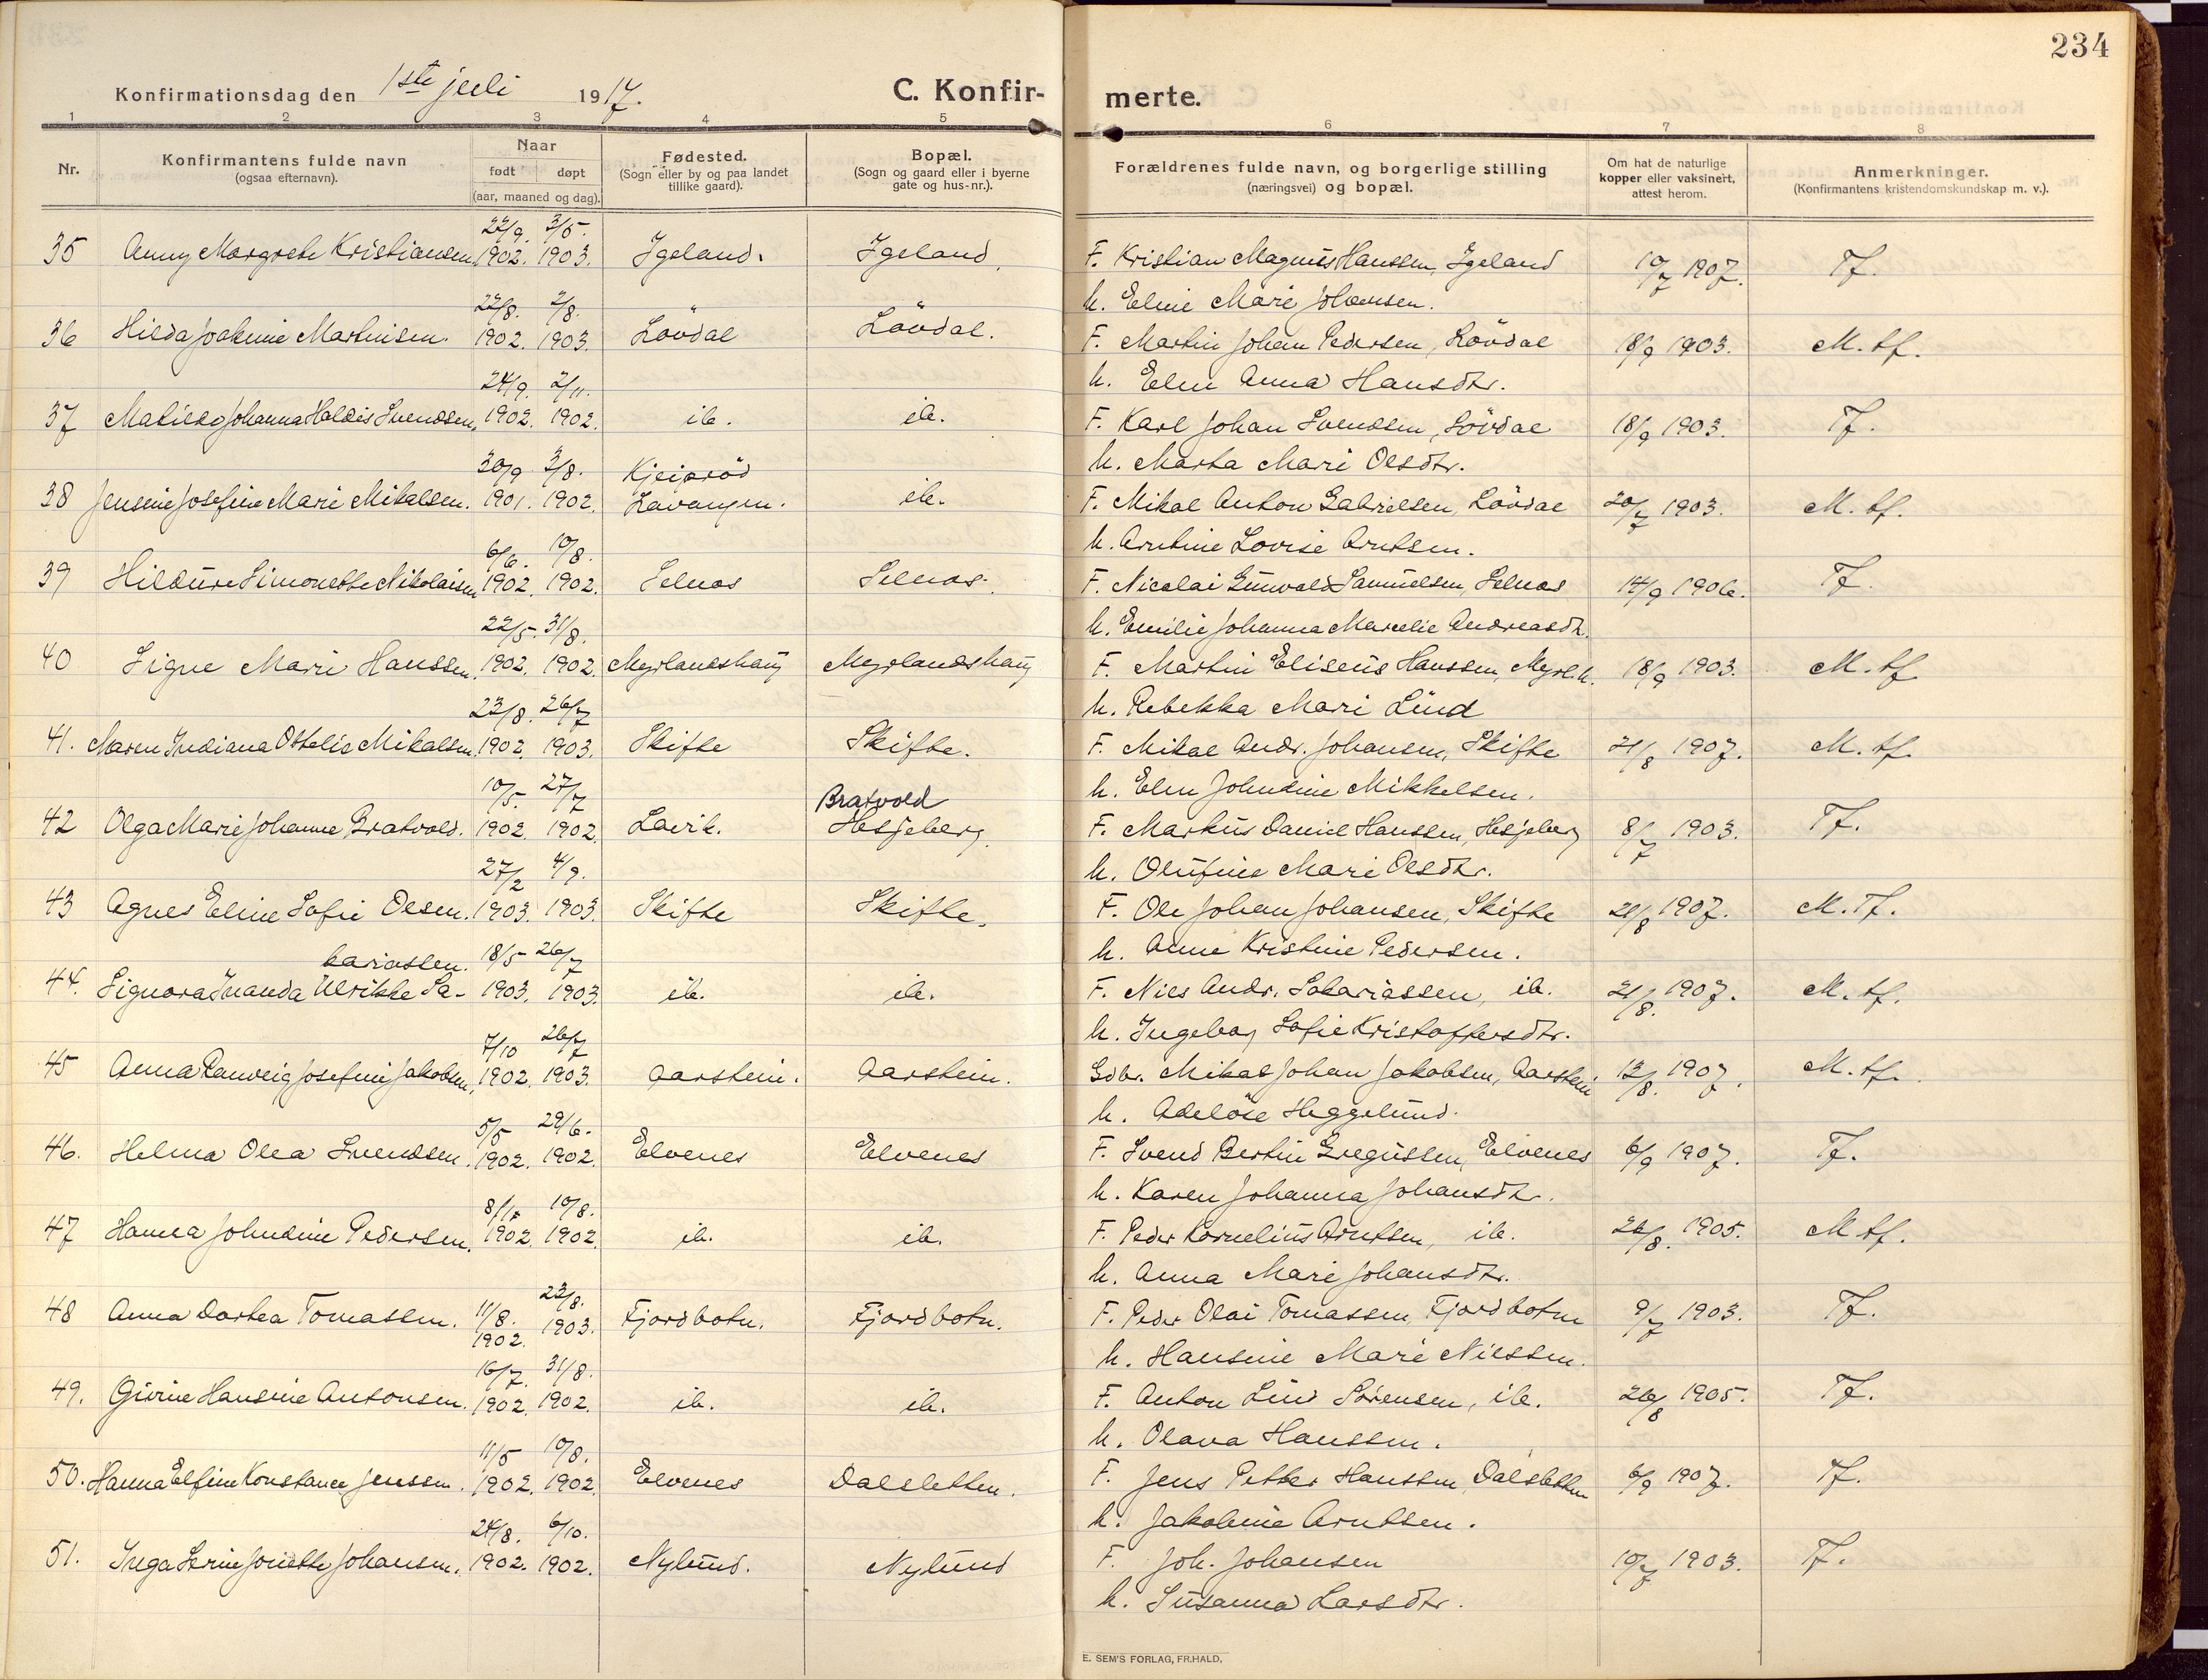 234
Konfirmationsdag den 1ste juli 1917.
C. Konfirmerte.
1 2 3 4 5 6 7 8
Nr.
Konfirmantens fulde navn
(ogsaa efternavn).
Naar
født døpt
(aar, maaned og dag).
Fødested.
(Sogn eller by og paa landet
tillike gaard).
Bopæl.
(Sogn og gaard eller i byerne
gate og hus-nr.).
Forældrenes fulde navn, og borgerlige stilling
(næringsvei) og bopæl.
Om hat de naturlige
kopper eller vaksinert,
attest herom.
Anmerkninger.
(Konfirmantens kristendomskundskap m. v.).
22/9. 3/5.
35 Anny Margrete Kristiansen 1902. 1903. Igeland. Igeland. F. Kristian Magnus Hanssen, Igeland 10/7 1907. Tf.
h. Eline Marie Johansen.
22/8. 2/8.
36 Hilda Joakime Martinsen. 1902. 1903. Lövdal Lövdal. F. Martin Johan Pedersen, Lövdal 18/9 1903. M. tf.
h. Elen Anna Hansdtr.
24/9. 2/11.
37 Matilde Johanna Haldis Svendsen, 1902. 1902. ib. ib. F. Karl Johan Svendsen, Lövdal 18/9 1903. Tf.
h. Marta Mari Olsdtr.
30/9 3/8. Kjeipröd
38 Jensine Josefine Marie Mikalsen. 1901. 1902. Lavangen. ib. F. Mikal Anton Gabrielsen, Lövdal 20/7 1903. M. tf.
h. Arntine Lovise Arntsen.
6/6. 10/8.
39 Hildure Simonette Nikolaisen 1902. 1902. Selnes Selnes. F. Nicolai Gunvald Samuelsen, Selnes 14/9 1906. Tf.
h. Emilie Johanna Marcelie Andreasdtr.
22/5. 31/8.
40 Signe Marie Hanssen. 1902. 1902. Myrlandshaug Myrlandshaug F. Martin Eliseus Hanssen, Myrl.h. 18/9 1903. M. tf.
h. Rebekka Mari Lind
23/8. 26/7
41. Maren Indiana Ottelie Mikalsen. 1902. 1903. Skifte Skifte. F. Mikal Andr. Johansen, Skifte 21/8 1907. M. tf.
h. Elen Johndine Mikkelsen.
10/5. 27/7 Bratvold
42 Olga Marie Johanne Bratvold. 1902. 1902. Lavik. Hesjeberg. F. Markus Daniel Hanssen, Hesjeberg 8/7 1903. Tf.
h. Olufine Mari Olsdtr.
27/2 4/9.
43 Agnes Eline Sofie Olsen. 1903. 1903. Skifte Skifte. F. Ole Johan Johansen, Skifte 21/8 1907. M. Tf.
h. Anne Kristine Pedersen.
kariassen. 18/5 26/7
44. Signora Inanda Ulrikke Sa- 1903. 1903. ib. ib. F. Nils Andr. Sakariassen, ib. 21/8. 1907. M. tf.
h. Ingeborg Sofie Kristoffersdtr.
7/10 26/7
45 Anna Ranveig Josefine Jakobsen, 1902. 1903. Aarstein. Aarstein. Gdbr. Mikal Johan Jakobsen, Aarstein 13/8. 1907. M. tf.
h. Adelöse Heggelund.
5/5 29/6.
46. Helma Olea Svendsen. 1902. 1902. Elvenes Elvenes F. Svend Bertin Gregussen, Elvenes 6/9 1907. Tf.
h. Karen Johanna Johansdtr.
8/1 10/8.
47 Hanna Johndine Pedersen. 1902. 1902. ib. ib. F. Peder Kornelius Arntsen, ib. 26/8. 1905. M tf.
h. Anna Marie Johansdtr.
11/8. 23/8.
48 Anna Dortea Tomassen. 1902. 1903. Fjordbotn. Fjordbotn. F. Peder Olai Tomassen, Fjordbotn 9/7 1903. Tf.
h. Hansine Marie Nilssen.
16/7. 31/8.
49. Givine Hansine Antonsen. 1902. 1902. ib. ib. F. Anton Lind Sörensen, ib. 26/8 1905. Tf.
h. Olava Hanssen.
11/5 10/8.
50. Hanna Elfine Konstance Jenssen. 1902. 1902. Elvenes Dalsletten. F. Jens Petter Hanssen, Dalsletten 6/9 1907. Tf.
h. Jakobine Arntsen.
24/8. 6/10.
51. Inga Serine Jonette Johansen. 1902. 1902. Nylund. Nylund F. Joh. Johansen 10/7 1903. Tf.
h. Susanna Larsdtr.
E. SEM'S FORLAG, FR.HALD.